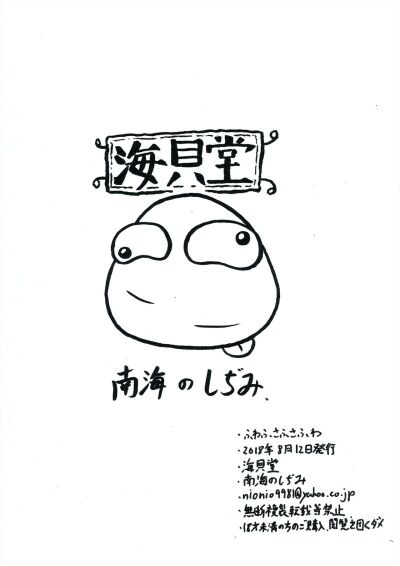 海貝堂
南海のしぢみ.
・ふわふさふさふわ
・2018年8月12日発行
・海貝堂
・南海のしぢみ
・nionio9981@yahoo.co.jp
・無断複製転載等禁止
・18才未満の方のご購入、閲覧を固くダメ